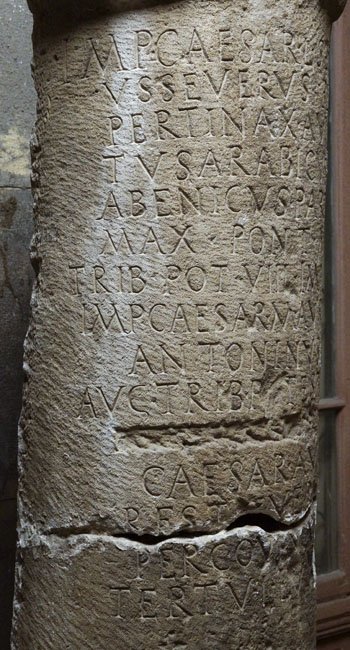 IMPCAESARS
VSSEVERVS
PERTINAXAV
TVSARABIC
ABENICVSPAR
MAX · PONT
TRIB·POT VIII IM
IMPCAESARMAV
ANTONINV
AVGTRIBP
CAESARA
REST
PERCOV
TERTVLL